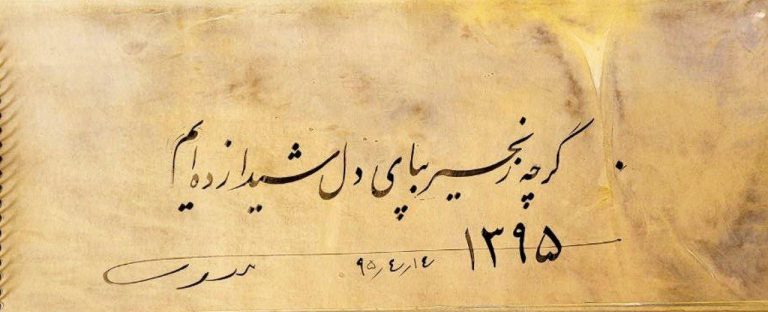 گرچه زنجیر بپای دل شیدا زده ایم
۱۳۹۵
۹۵٫۴٫۱۴